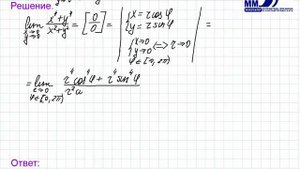 Решение.
lim x→0 y→0 (x⁴+y⁴)/(x²+y²) = [0/0] = | { x = r cos φ
y = r sin φ
{ x→0 y→0 <=> r→0
φ∈[0, 2π) | =
= lim r→0 φ∈[0, 2π) (r⁴cos⁴φ + r⁴sin⁴φ)/r²
Ответ: